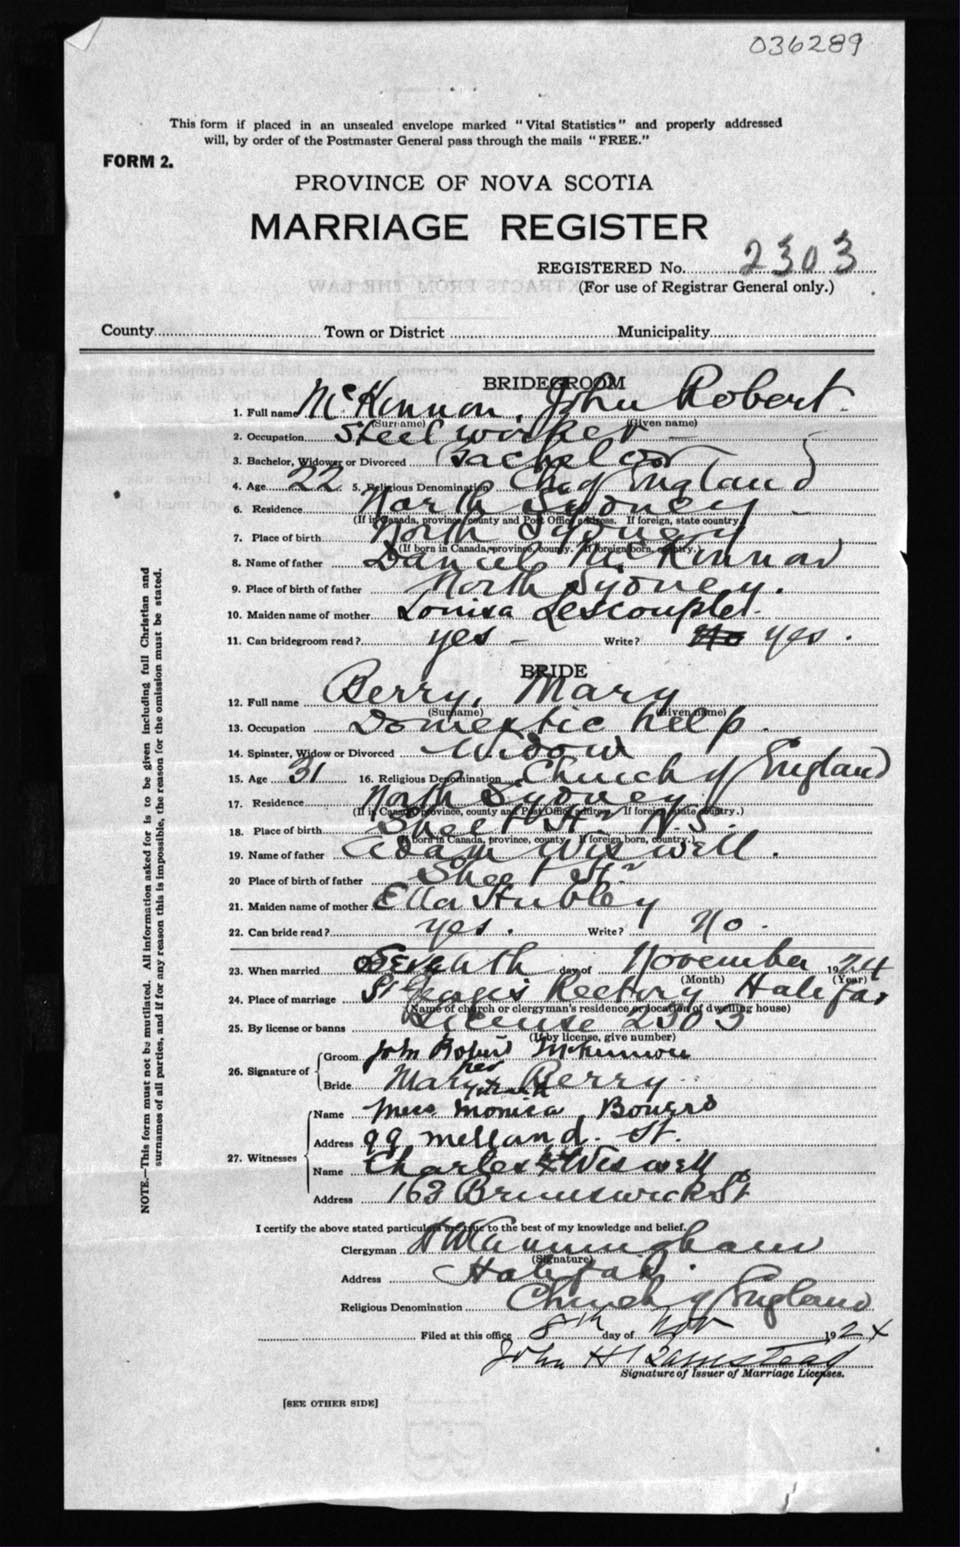 036289
This form if placed in an unsealed envelope marked "Vital Statistics" and properly addressed
will, by order of the Postmaster General pass through the mails "FREE."
FORM 2.
PROVINCE OF NOVA SCOTIA
MARRIAGE REGISTER
REGISTERED No. 2303
(For use of Registrar General only.)
County Town or District Municipality
BRIDEGROOM
1. Full name McKinnon, John Robert
(Surname) (Given name)
2. Occupation Steel worker
3. Bachelor, Widower or Divorced Bachelor
4. Age 22 5. Religious Denomination Ch of England
6. Residence North Sydney
(If in Canada, province, county and Post Office address. If foreign, state country.)
7. Place of birth North Sydney
(If born in Canada, province, county. If foreign born, country.)
8. Name of father Daniel McKinnon
9. Place of birth of father North Sydney.
10. Maiden name of mother Louisa Lescouplet.
11. Can bridegroom read? yes - Write? No yes.
BRIDE
12. Full name Berry, Mary
(Surname) (Given name)
13. Occupation Domestic help.
14. Spinster, Widow or Divorced Widow
15. Age 31 16. Religious Denomination Church of England
17. Residence North Sydney
(If in Canada, province, county and Post Office address. If foreign, state country.)
18. Place of birth Sheet Hr N.S.
(If born in Canada, province, county. If foreign born, country.)
19. Name of father Adam Wiswell.
20 Place of birth of father Sheet Hr
21. Maiden name of mother Ella Hubley
22. Can bride read? yes. Write? No.
23. When married Seventh day of November 1924
(Month) (Year)
24. Place of marriage St Georges Rectory Halifax
(Name of church or clergyman's residence or location of dwelling house)
25. By license or banns License 2303
(If by license, give number)
26. Signature of Groom John Robert McKinnon
Bride Mary her x mark Berry
27. Witnesses Name Miss Monica Bowers
Address 99 St.
Name Charles Wiswell
Address 163 Brunswick St
I certify the above stated particulars are true to the best of my knowledge and belief.
Clergyman H W Cunningham
(Signature)
Address Halifax.
Religious Denomination Church of England
Filed at this office 8th day of Nov 1924
John H
Signature of Issuer of Marriage Licenses.
[SEE OTHER SIDE]
NOTE.—This form must not be mutilated. All information asked for is to be given including full Christian and
surnames of all parties, and if for any reason this is impossible, the reason for the omission must be stated.